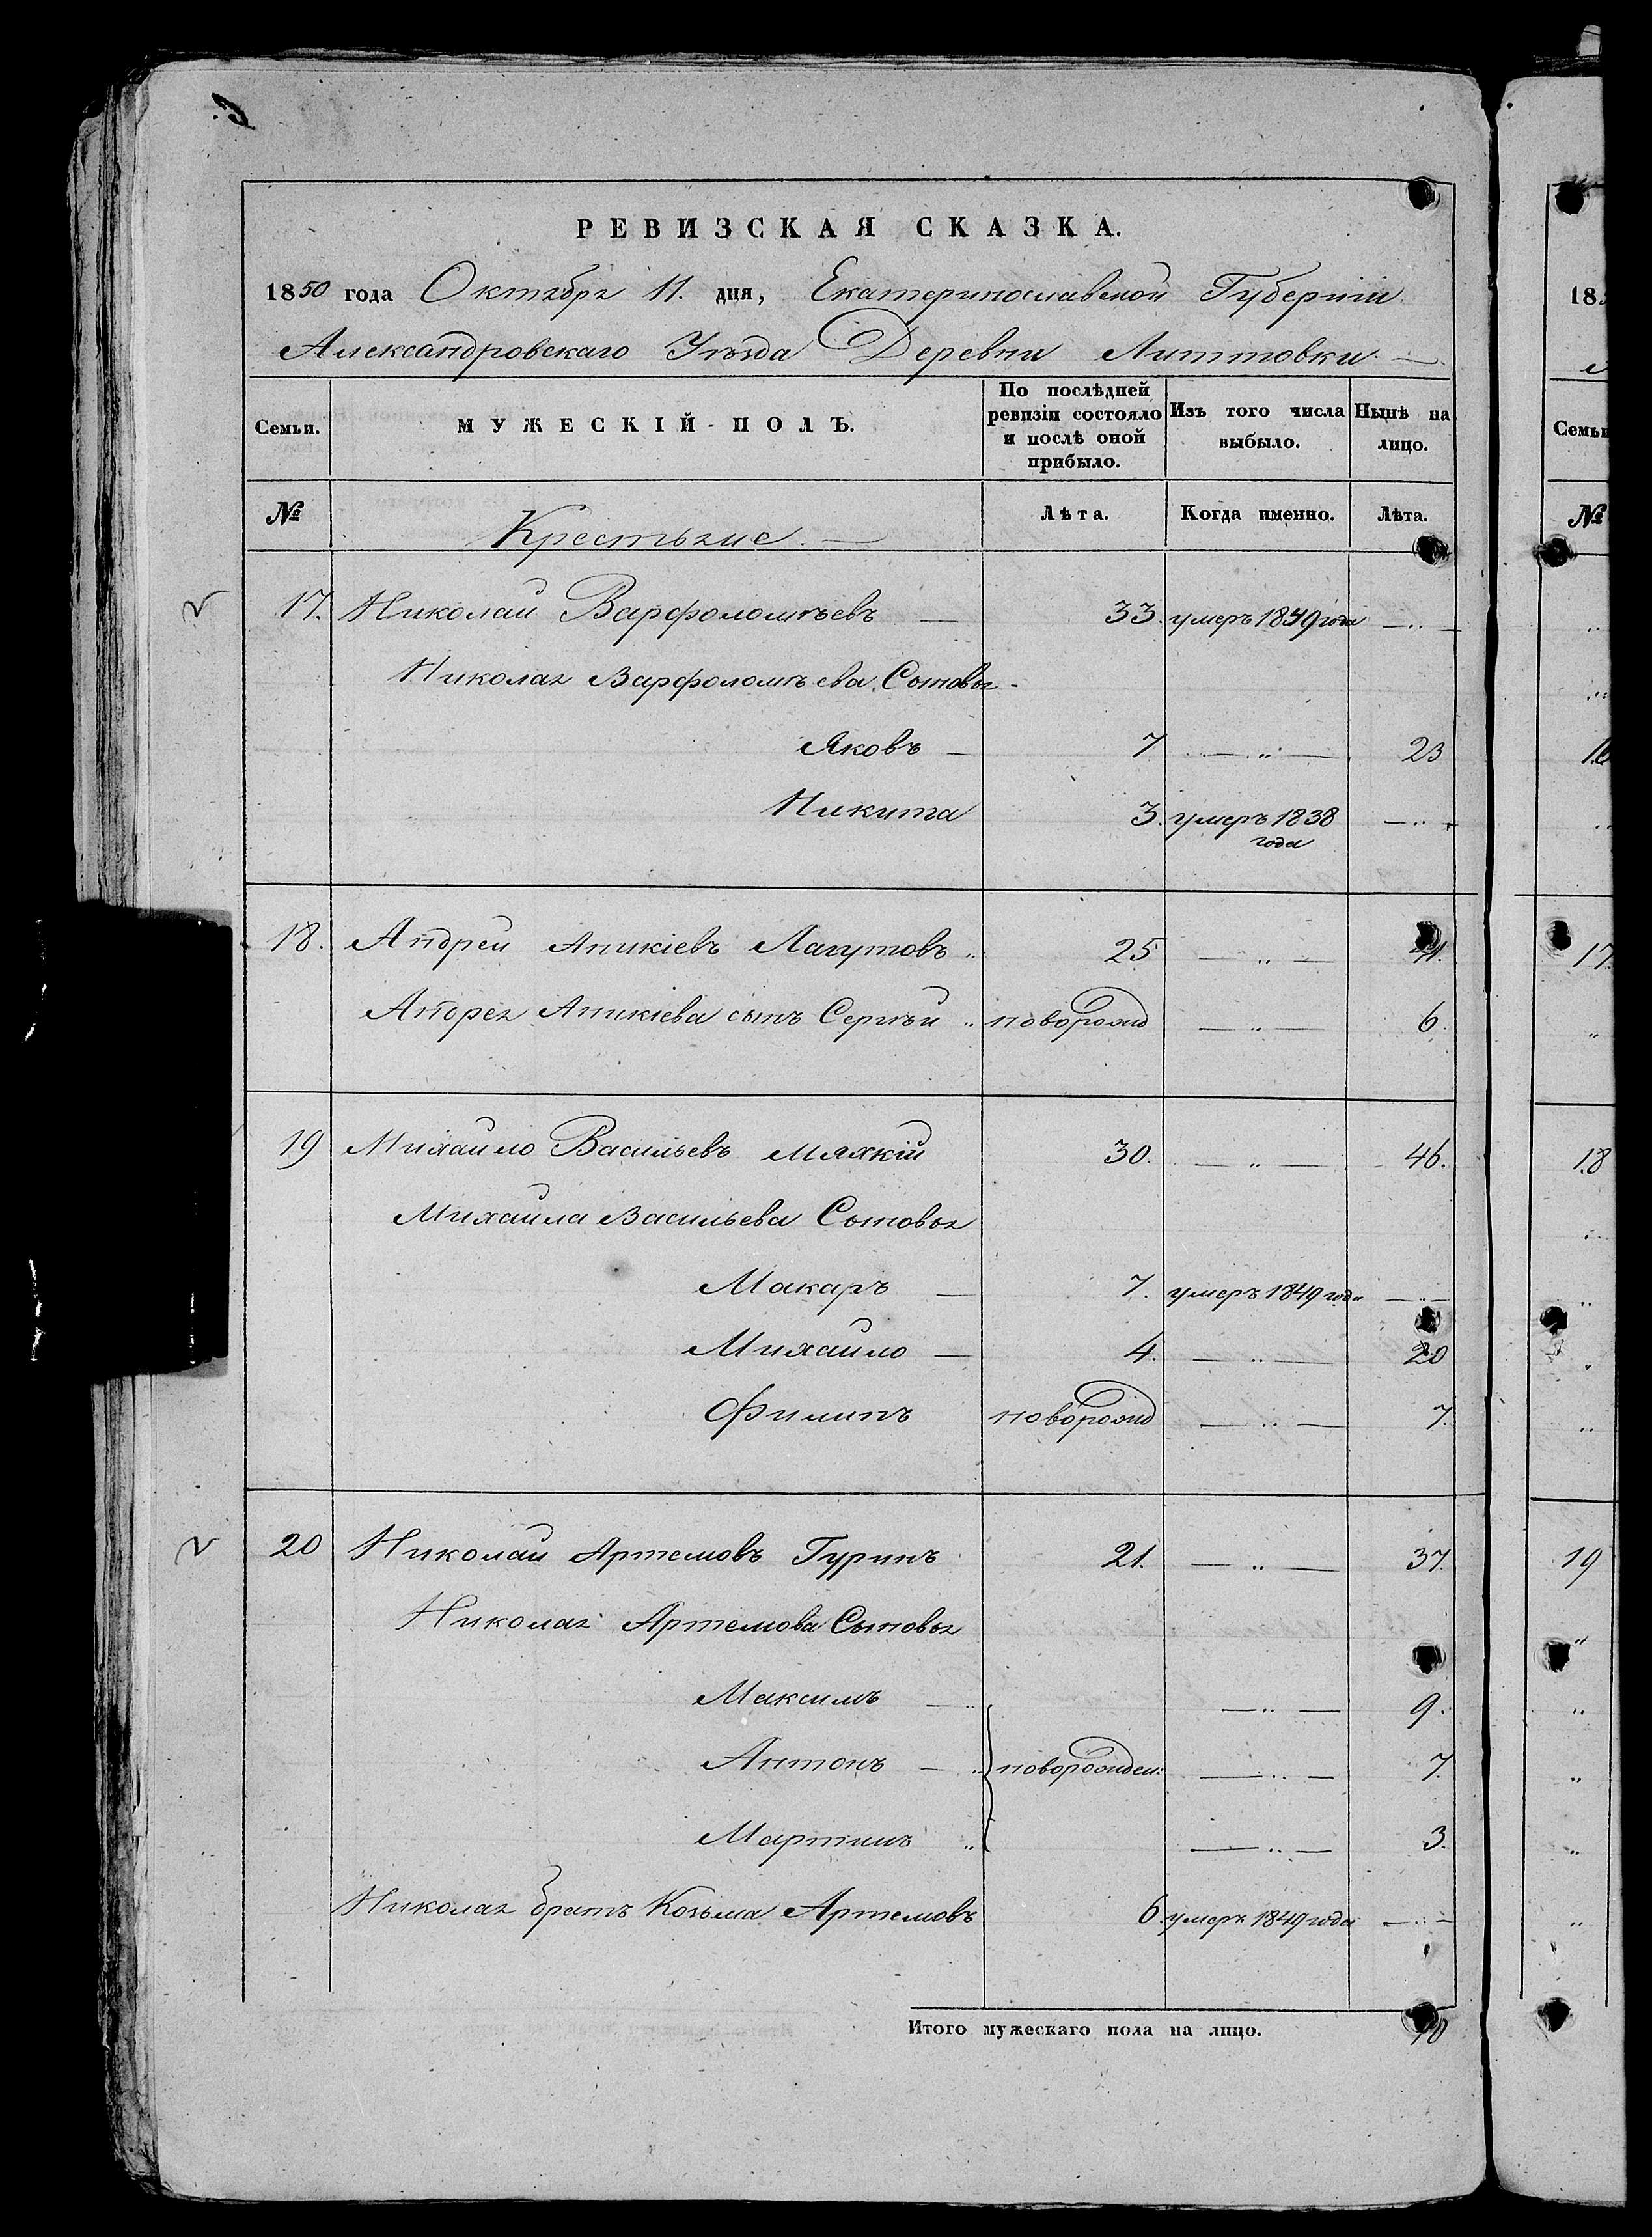 РЕВИЗСКАЯ СКАЗКА.
1850 года Октября 11. дня, Екатеринославской Губернiи
Александровскаго Уѣзда Деревни Литтовки.
Семьи. МУЖЕСКIЙ ПОЛЪ. По послѣдней ревизiи состояло и послѣ оной прибыло. Изъ того числа выбыло. Нынѣ на лицо.
№ Крестьяне. Лѣта. Когда именно. Лѣта.
17. Николай Варфоломѣевъ — 33. умеръ 1849 года —..—
Николая Варфоломѣева Сыновья
Яковъ — 7 —„— 23
Никита 3. умеръ 1838 года —..—
18. Андрей Аникiевъ Лагутовъ „ 25 —„— 41.
Андрея Аникiева сынъ Сергѣй „ новорожд —„— 6.
19 Михайло Васильевъ Мяхкiй 30. —„— 46.
Михайла Васильева Сыновья
Макаръ — 7. умеръ 1849 года —..—
Михайло — 4. —„— 20
Филипъ новорожд —„— 7.
20 Николай Артемовъ Гуринъ 21. —„— 37.
Николая Артемова Сыновья
Максимъ —„ —„— 9.
Антонъ —„ новорожден: —„— 7.
Мартинъ „ —„— 3.
Николая братъ Козьма Артемовъ 6. умеръ 1849 года —..—
Итого мужескаго пола на лицо. 10
18
Семьи
№
16
17.
18
19